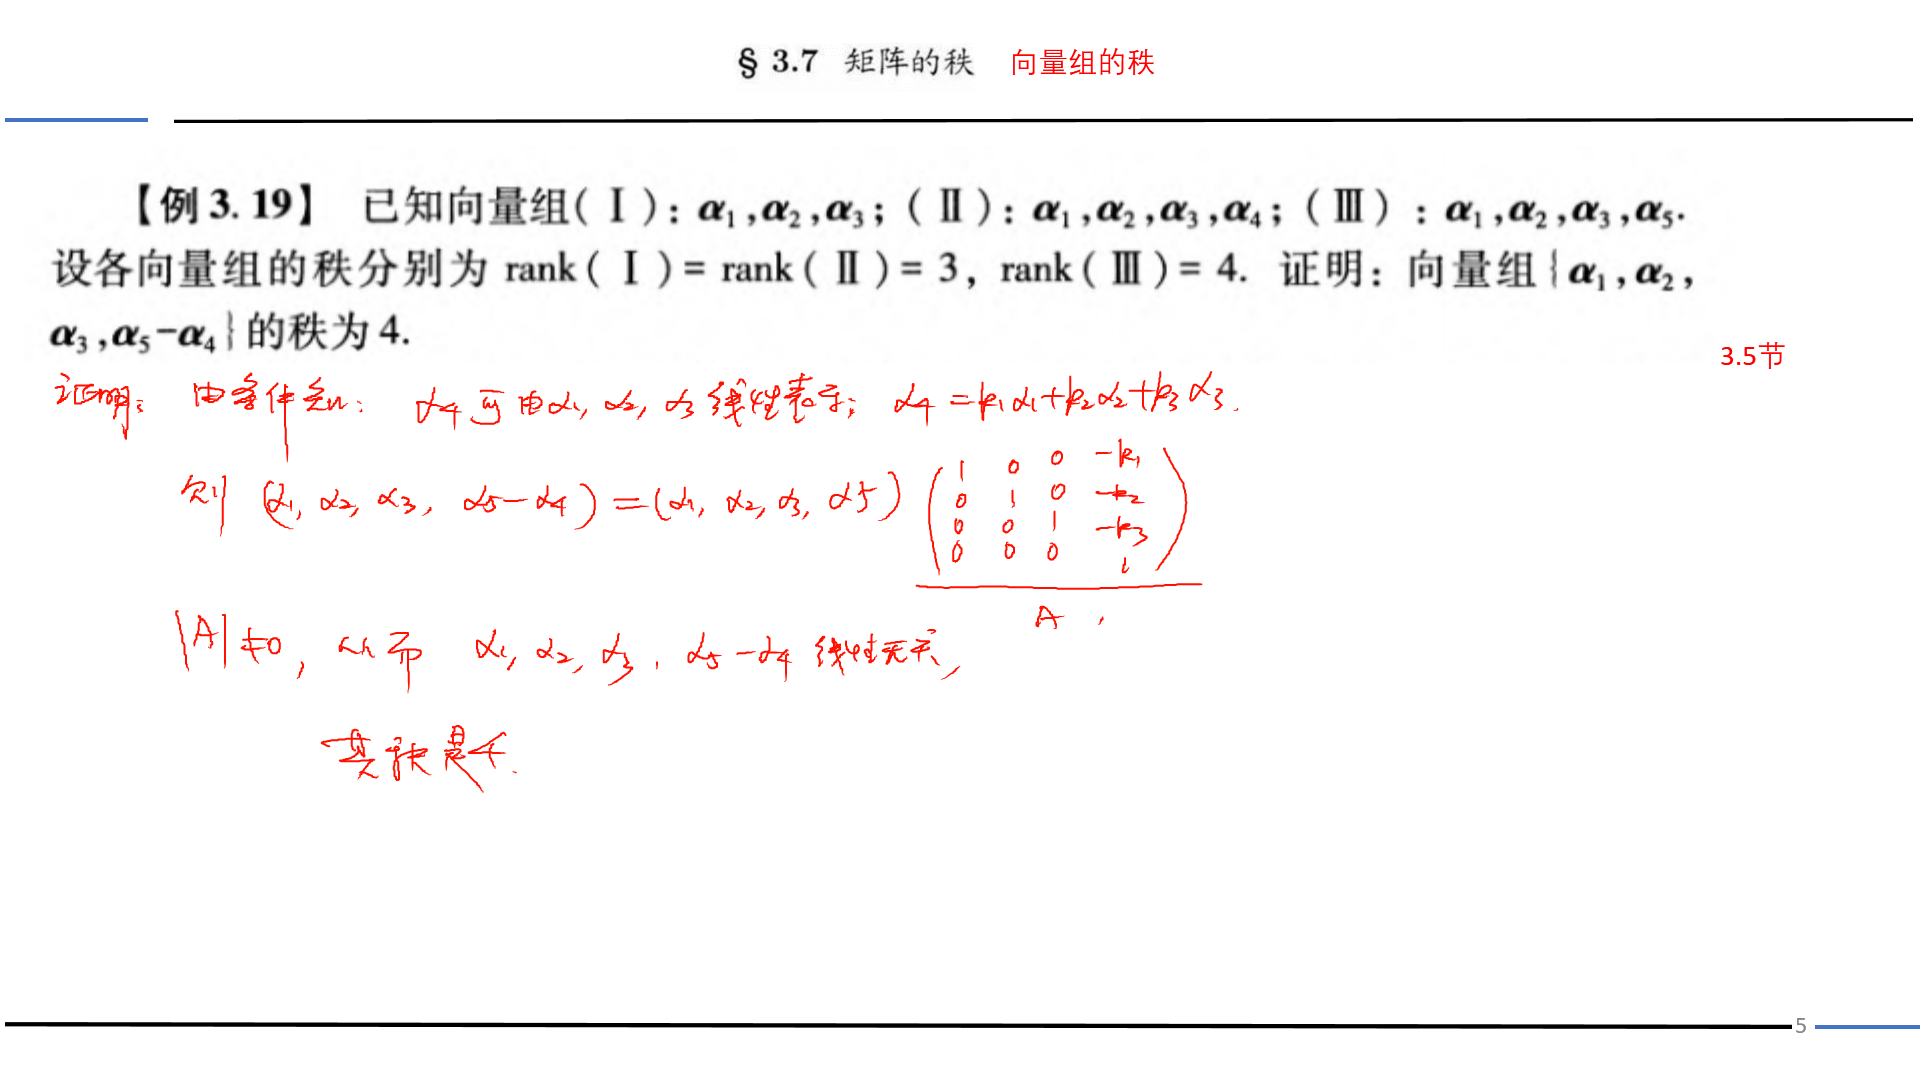 § 3.7 矩阵的秩 向量组的秩
【例 3. 19】 已知向量组(Ⅰ): α₁,α₂,α₃; (Ⅱ): α₁,α₂,α₃,α₄; (Ⅲ) : α₁,α₂,α₃,α₅.
设各向量组的秩分别为 rank(Ⅰ)= rank(Ⅱ)= 3, rank(Ⅲ)= 4. 证明: 向量组{α₁,α₂,
α₃,α₅-α₄}的秩为 4.
3.5节
证明: 由条件知: α4 可由α1, α2, α3 线性表示; α4 =k1α1+k2α2+k3α3.
则 (α1, α2, α3, α5-α4) =(α1, α2, α3, α5)
1 0 0 -k1
0 1 0 -k2
0 0 1 -k3
0 0 0 1
A ,
|A|≠0, 从而 α1, α2, α3, α5-α4 线性无关,
其秩是4.
5